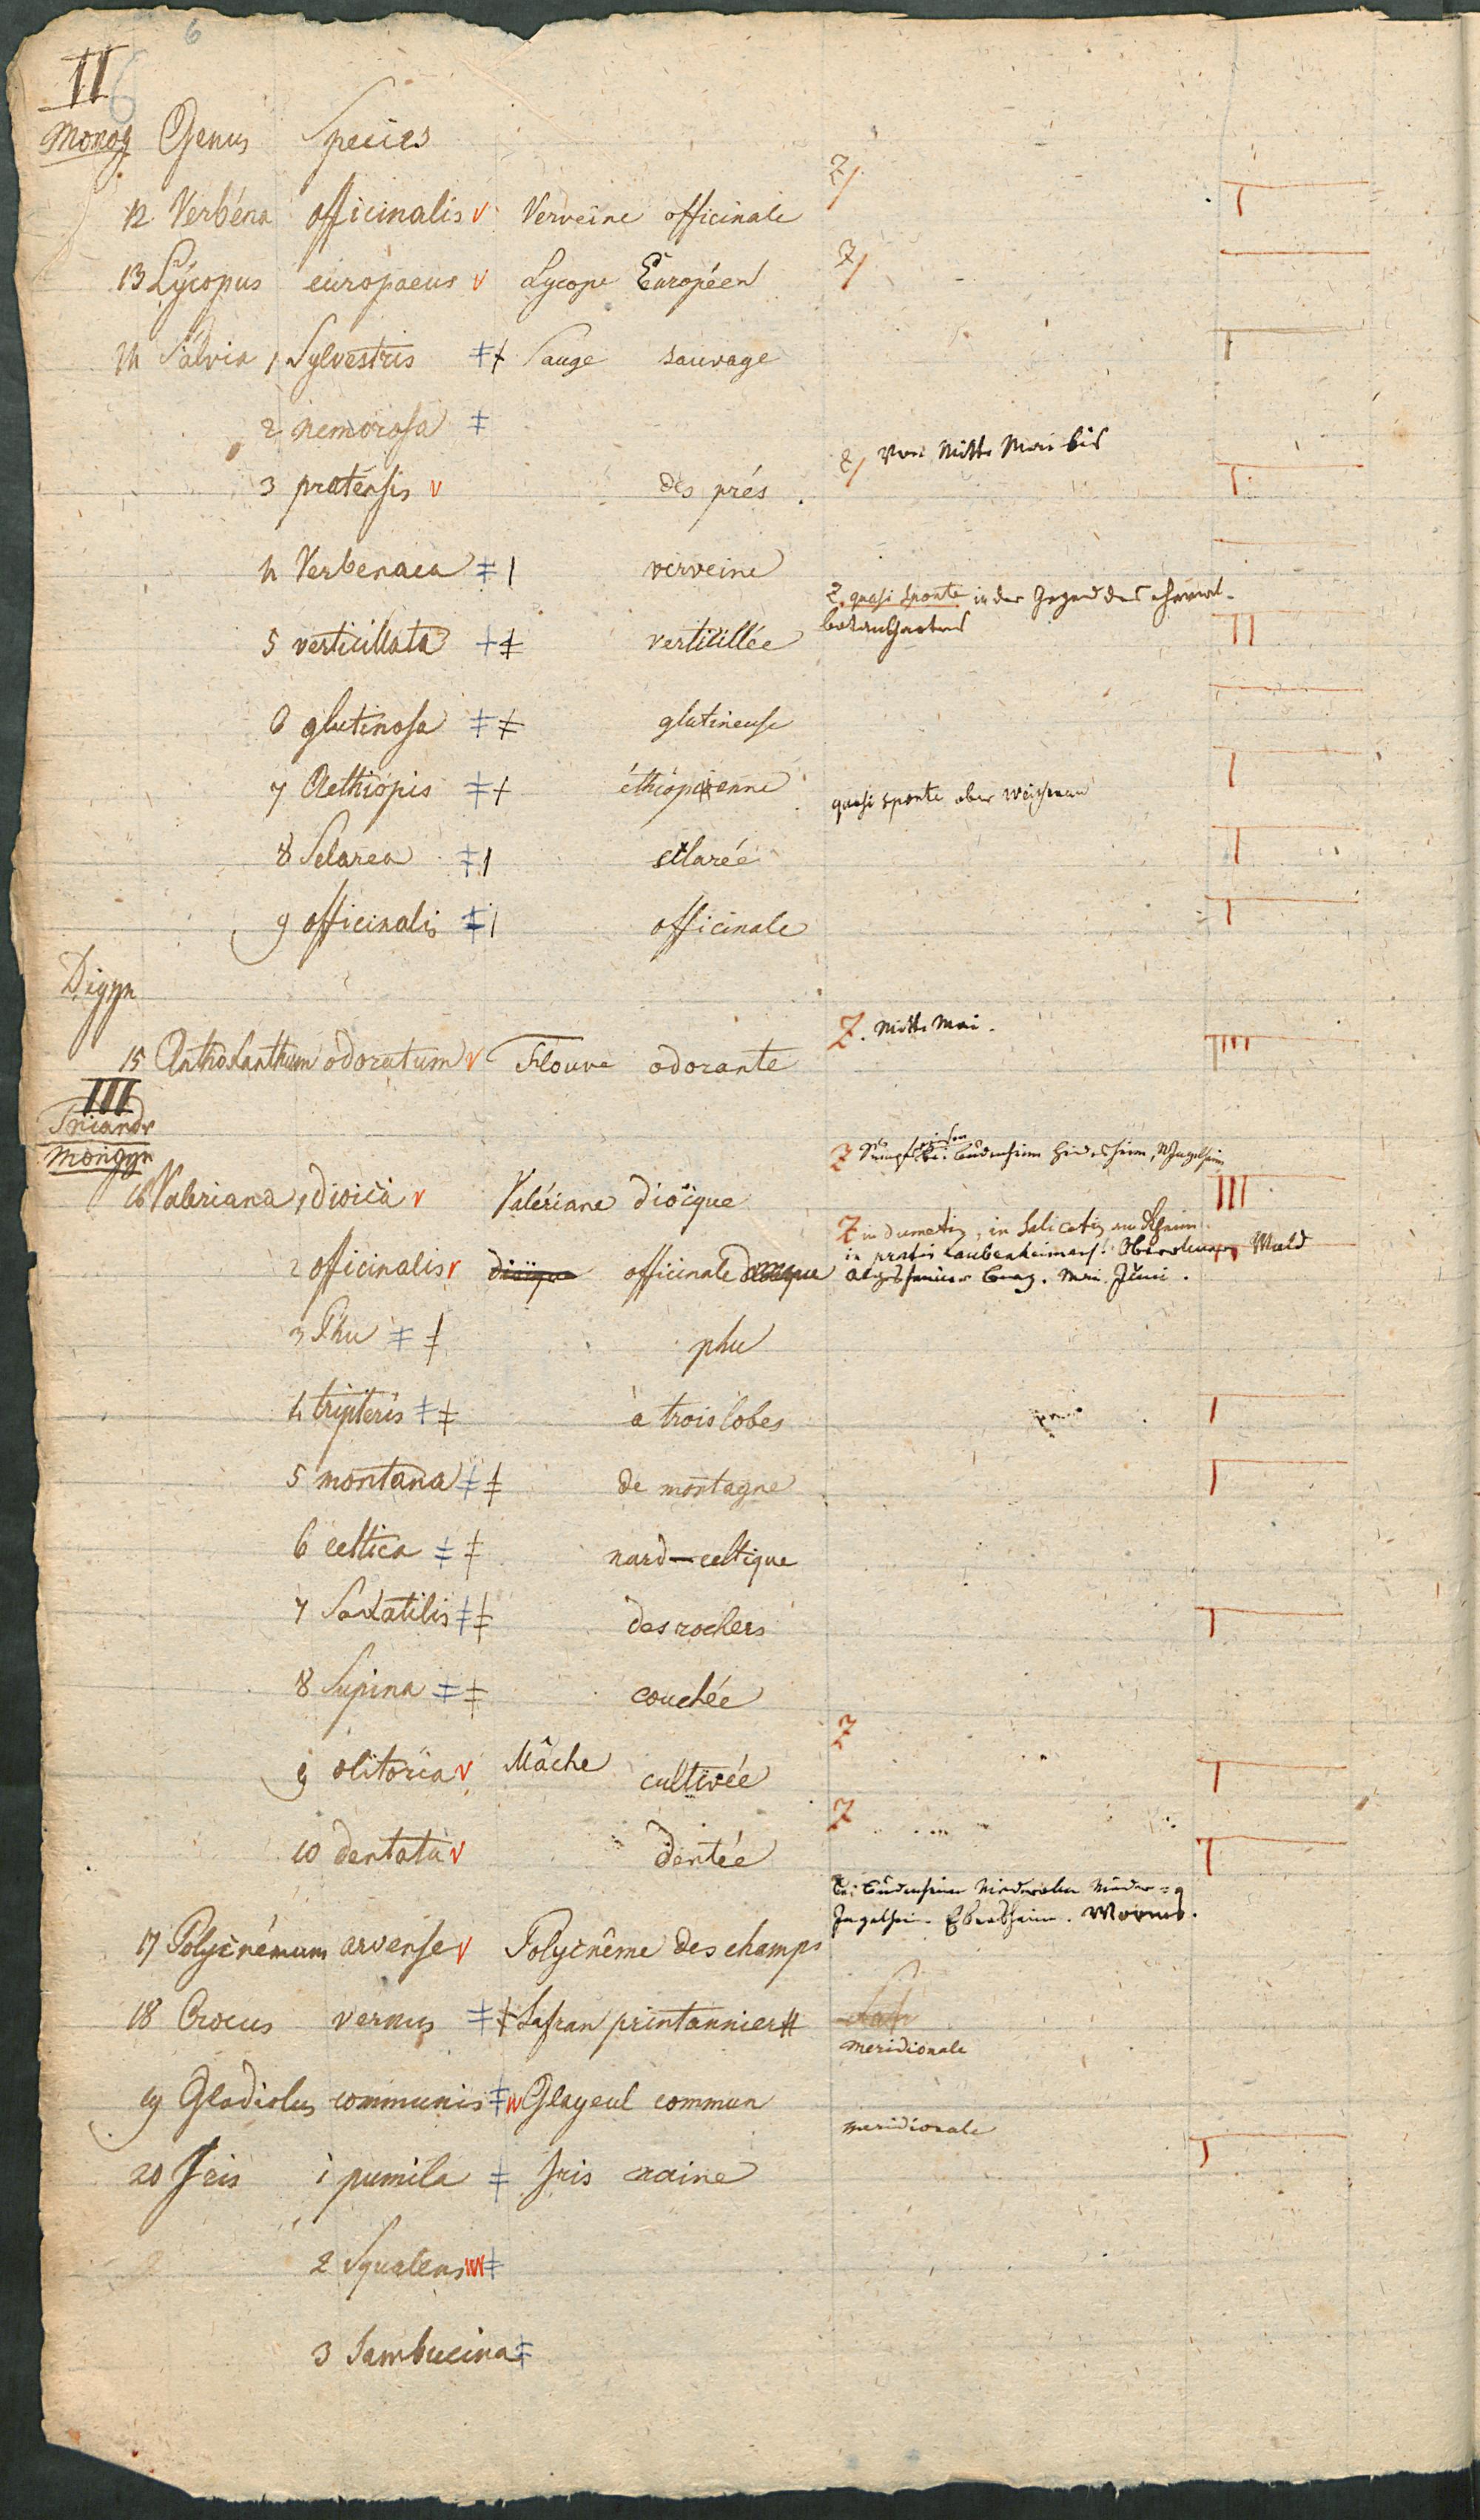 6
II 6
Monog Genus Species
12 Verbéna officinalis v Verveine officinale
13 Lycopus europaeus v Lycope Européen
14 Salvia 1 Sylvestris ‡ ‡ Sauge sauvage
2 nemorosa ‡
Von Mitte Mai bis
3 pratensis v des prés
4 Verbenaca ‡ | verveine
quasi sponte in der Gegend des
5 verticillata ‡ ‡ verticillée
6 glutinosa ‡ ‡ glutineuse
7 Aethiopis ‡ ‡ éthiopienne
quasi sponte ober Weisenau
8 Sclarea ‡ | sclarée
9 officinalis ‡ | officinale
Digyn
Mitte Mai.
15 Anthoxanthum odoratum v Flouve odorante
III
Triandr
Mongyn
bei Budenheim Heidesheim,
16 Valeriana 1 dioica v Valériane dioïque
in dumetis, in Salicetis am Rhein.
in pratis Laubenheimens! Oberolmer Wald
2 officinalis v dioïque officinale
Mai. Juni.
3 Phu ‡ ‡ phu
4 tripteris ‡ ‡ à trois lobes
5 montana ‡ ‡ de montagne
6 celtica ‡ ‡ nard-celtique
7 Saxatilis ‡ ‡ des rochers
8 Supina ‡ ‡ couchée
9 olitoria v Mâche cultivée
10 dentata v dentée
bei Budenheim Niederolm Nieder=
Ingelheim Ebersheim. Worms.
17 Polycnémum arvense v Polycnême des champs
18 Crocus vernus ‡ ‡ Safran printannier #
meridionale
19 Gladiolus communis ‡ Glayeul commun
meridionale
20 Iris 1 pumila ‡ Iris naine
2 Squalens ‡
3 Sambucina ‡